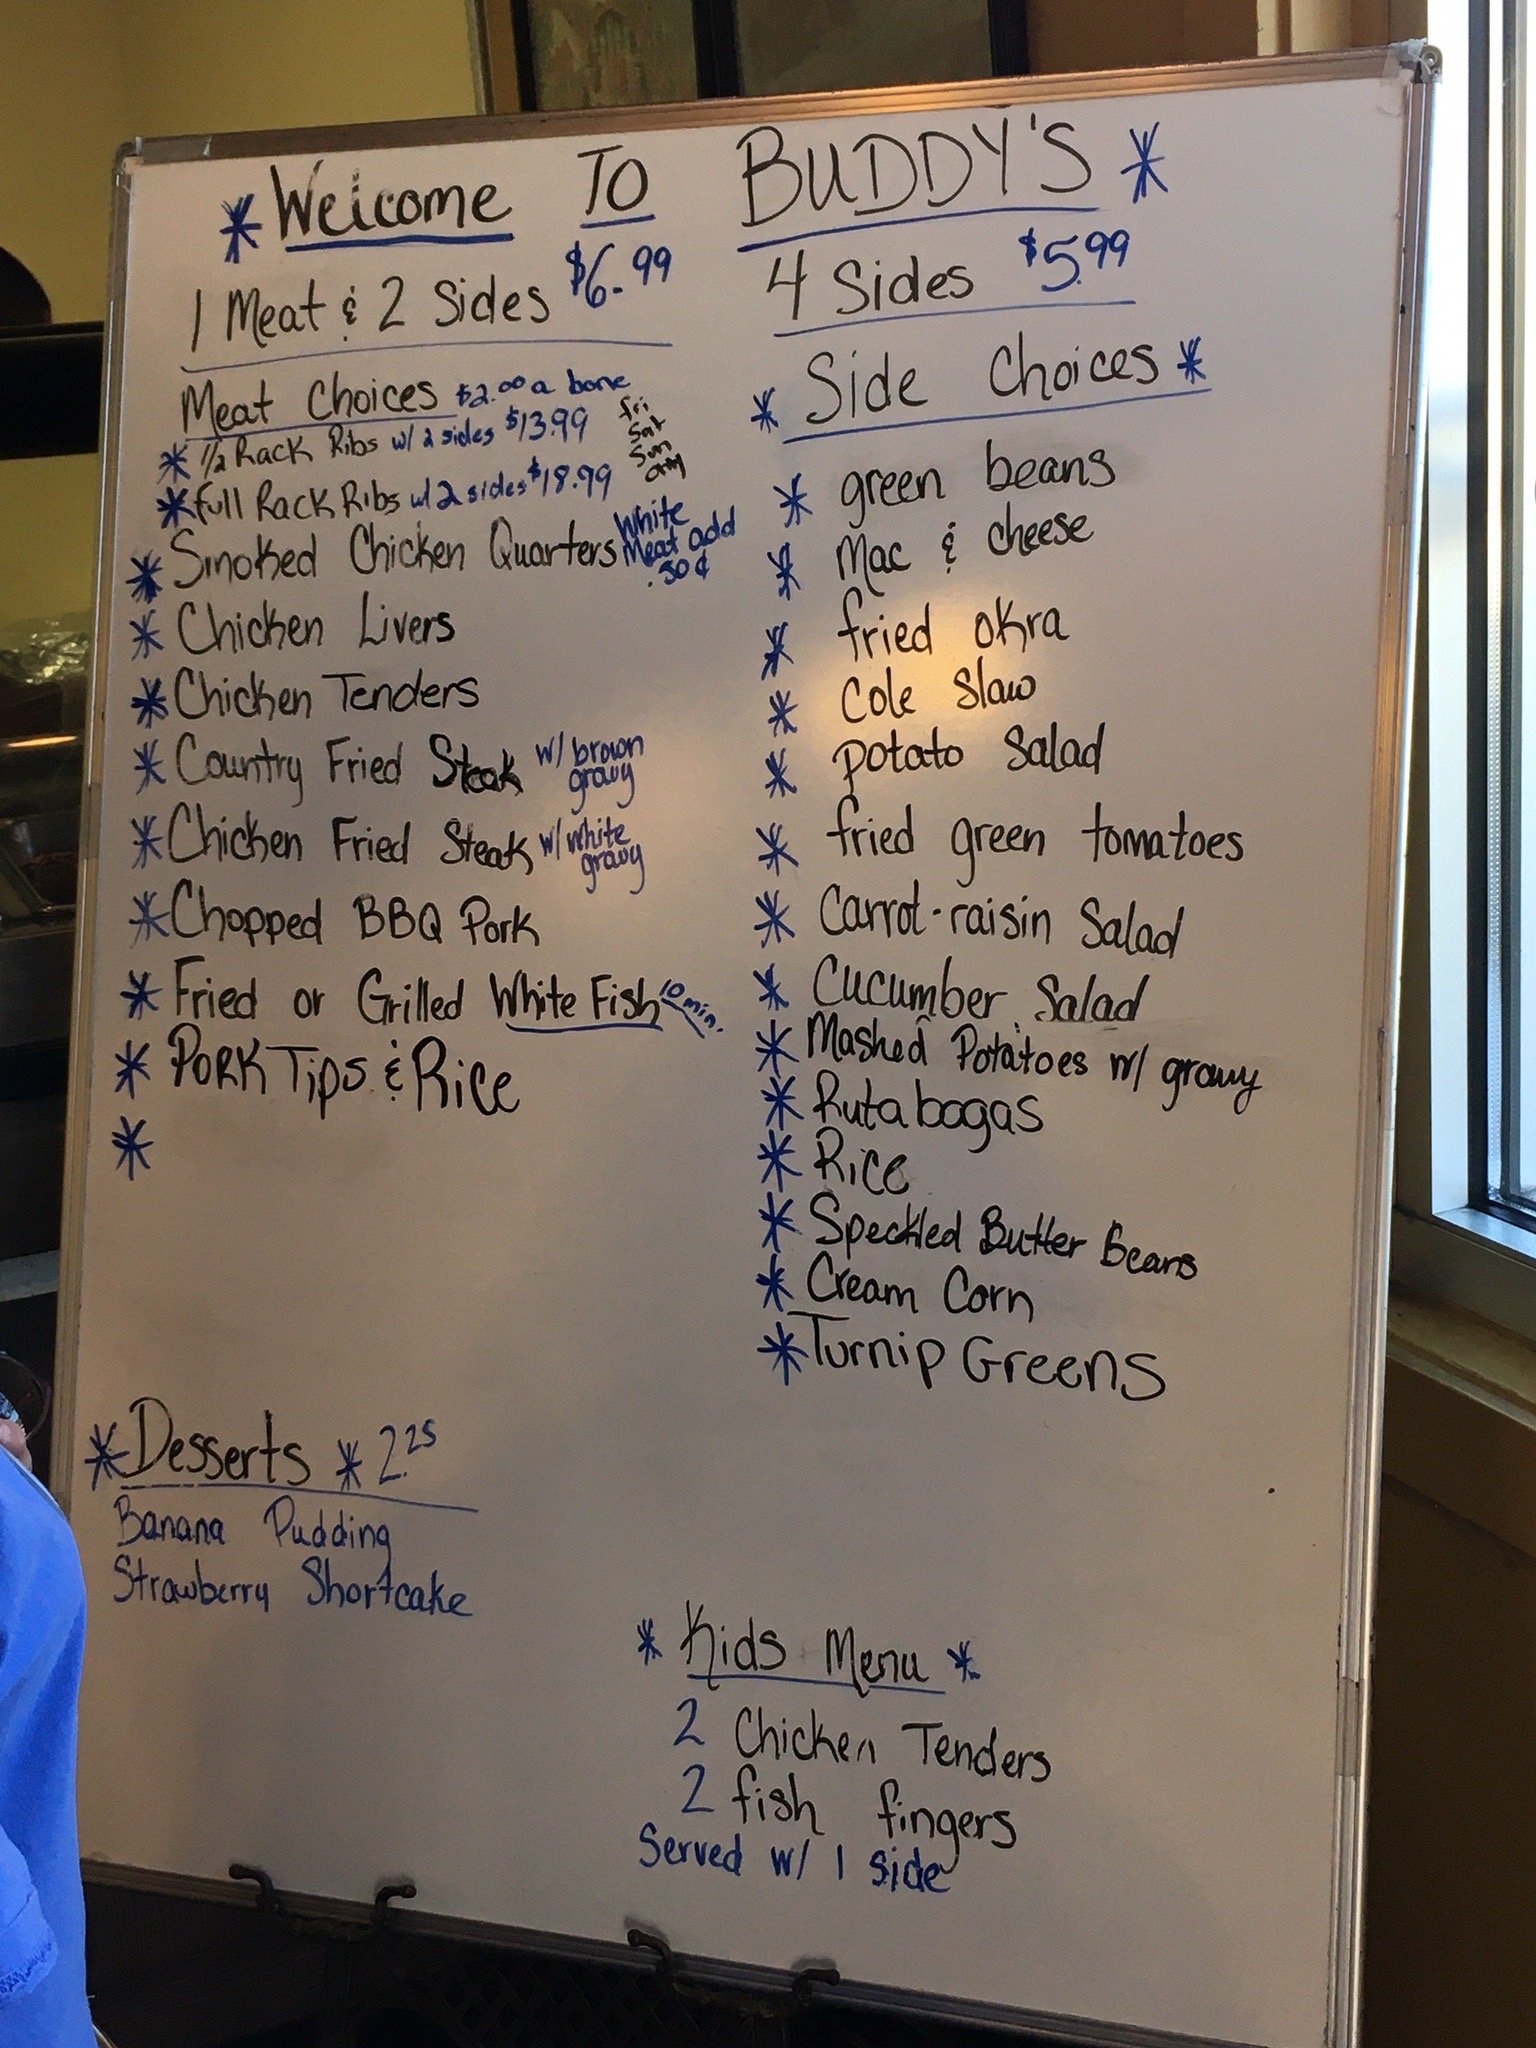 * Welcome To BUDDY'S *
1 Meat & 2 Sides $6.99
Meat Choices $2.00 a bone
* 1/2 Rack Ribs w/ 2 sides $13.99
* Full Rack Ribs w/ 2 sides $18.99
fri
Sat
Sun
only
* Smoked Chicken Quarters White
Meat add
.50¢
* Chicken Livers
* Chicken Tenders
* Country Fried Steak w/ brown
gravy
* Chicken Fried Steak w/ white
gravy
* Chopped BBQ Pork
* Fried or Grilled White Fish 10 min.
* Pork Tips & Rice
*
4 Sides $5.99
* Side Choices *
* green beans
* Mac & cheese
* fried okra
* Cole Slaw
* potato Salad
* fried green tomatoes
* Carrot-raisin Salad
* Cucumber Salad
* Mashed Potatoes w/ gravy
* Rutabagas
* Rice
* Speckled Butter Beans
* Cream Corn
* Turnip Greens
* Desserts * 2.25
Banana Pudding
Strawberry Shortcake
* Kids Menu *
2 Chicken Tenders
2 fish fingers
Served w/ 1 side